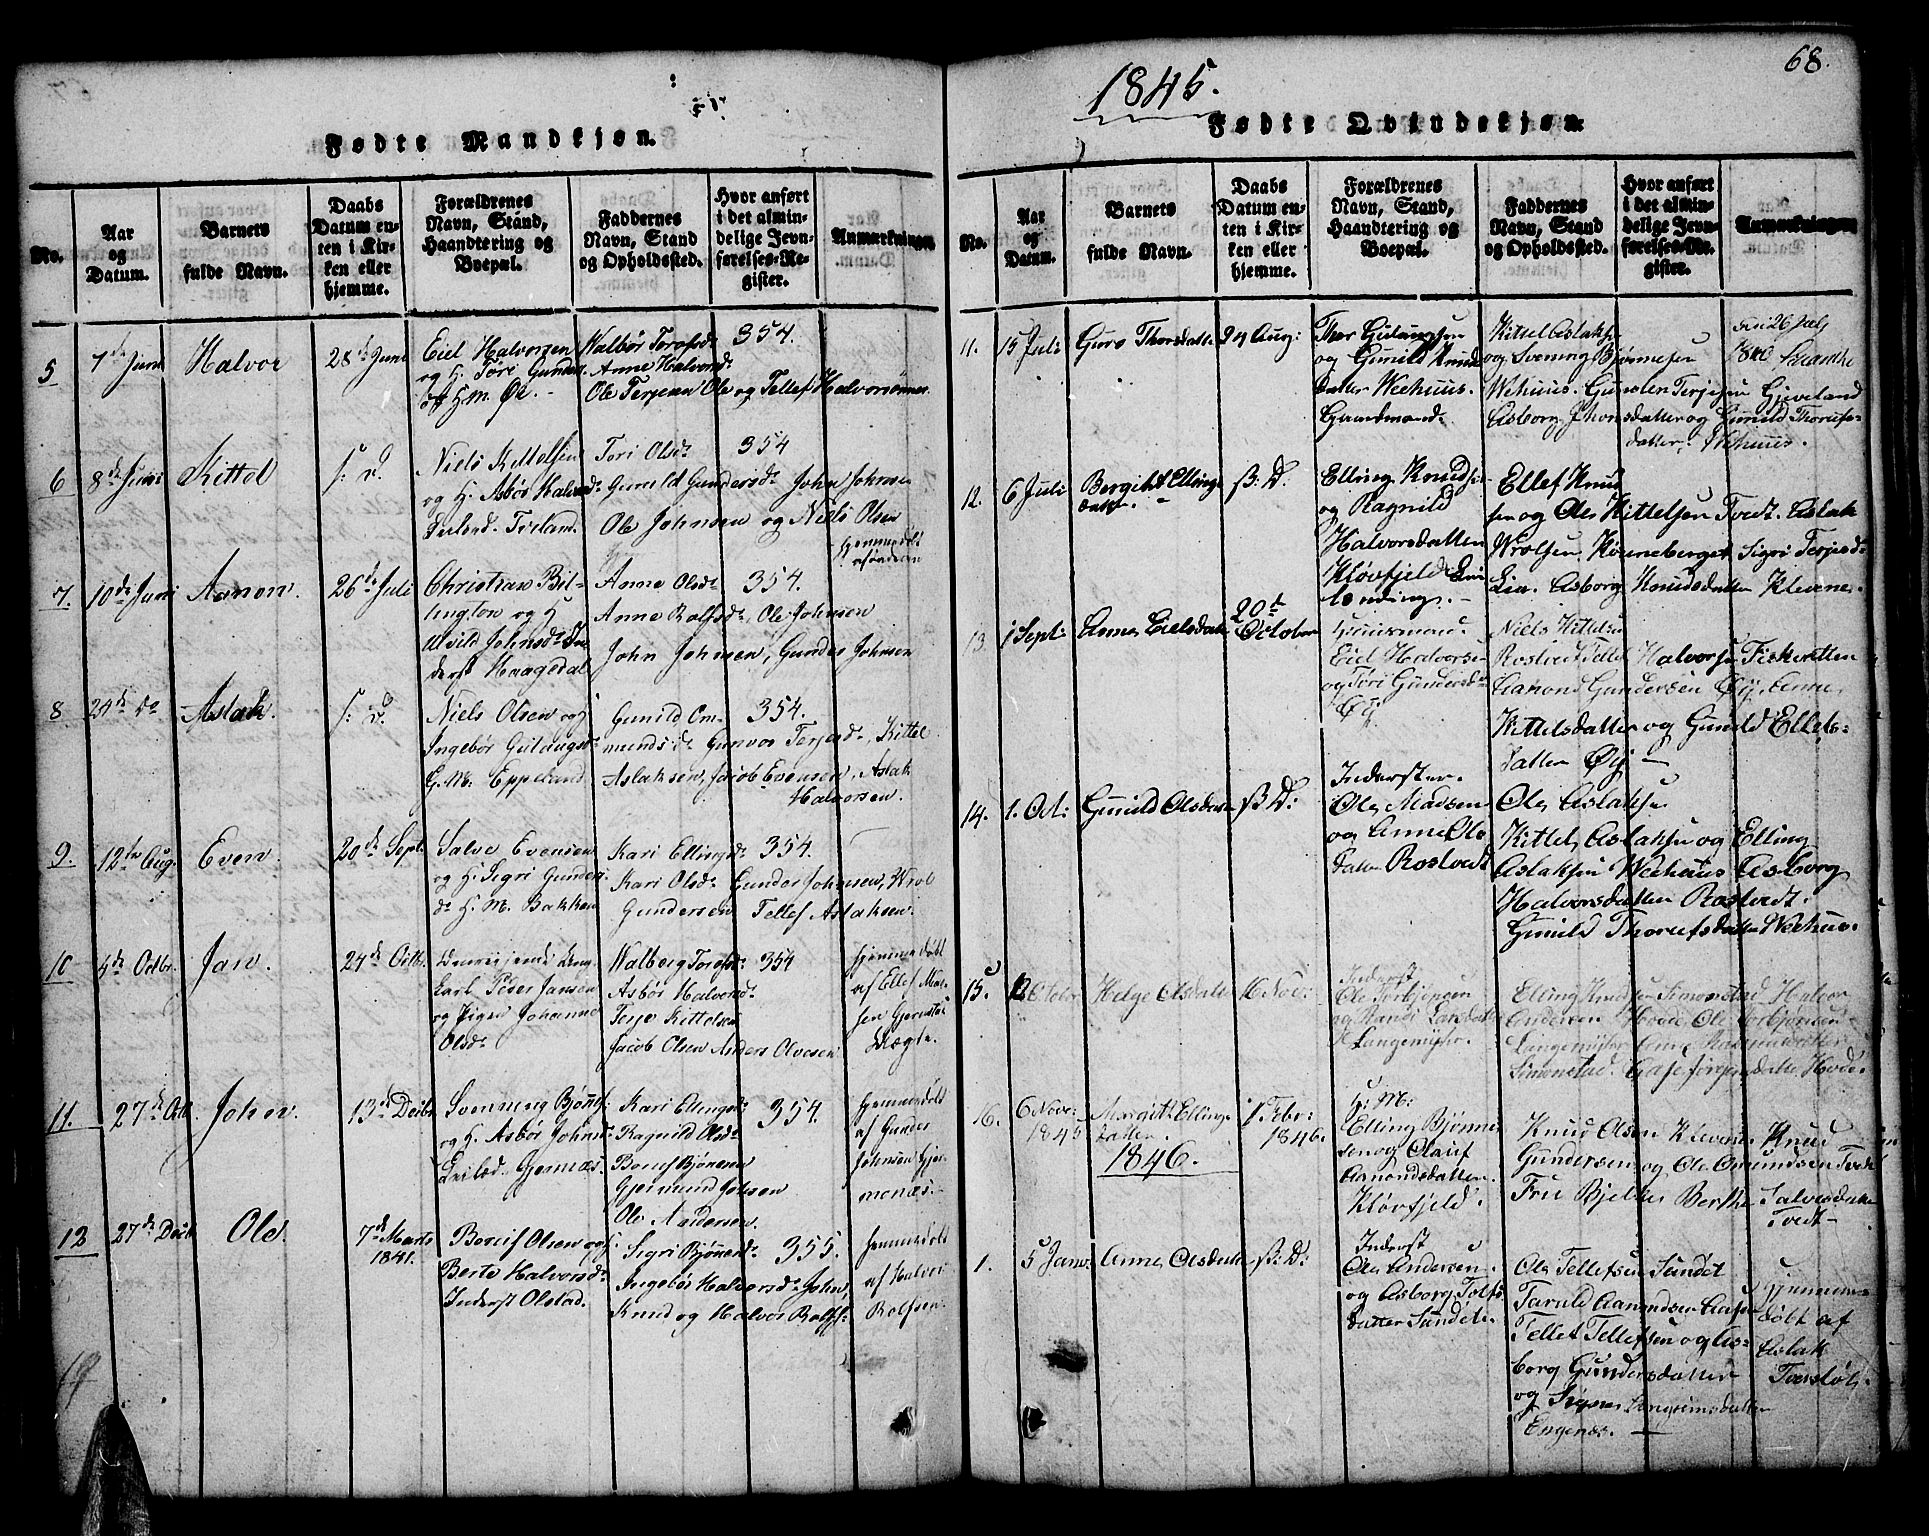 68.
1845.
Fødte Mandkjøn.
No.
Aar og Datum.
Barnets fulde Navn.
Daabs Datum enten i Kirken eller hjemme.
Forældrenes Navn, Stand, Haandtering og Boepæl.
Faddernes Navn, Stand og Opholdssted.
Hvor anført i det almindelige Jevnførelses-Register.
Anmærkninger.
5
7de Juni
Halvor
28de Juni
Eiel Halvorsen
og H. Töri Gunders
H.M. Øi.
Walbör Torufsd.
Anne Halvorsd.
Ole Terjesen Ole og Tellef Halvorsønner
354.
6
8de Juni
Kittel
s. D.
Niels Kittelsen
og H. Asbör Halvorsd.
Tveland.
Tori Olsdr
Gunild Gundersdr John Johnsen
Ole Johnsen og Niels Olsen
354
7.
10de Juni
Aanon.
26de Juli
Christian Bil-
lington og H.
Johnsdr In-
derst Haagsdal
Anne Olsdr
Anne Rolfsdr, Ole Johnsen
John Johnsen, Gunder Johnsen
354.
hjemmedøbt
8
24de Do
Aslak.
s. D.
Niels Olsen og H.
Ingebör Gulaugsdr
G.M. Eppeland
Gunild Om-
mundsdr Gunvor Terjesdr, Kittel
Aslaksen, Jacob Evensen, Aslak
Halvorsen.
354.
9.
12te Aug.
Even
20de Sept.
Salve Evensen
og H. Sigri Gunders
dr H. M. Bakken
Kari Ellingsdr
Kari Olsdr Gunder Johnsen, Wrol
Gundersen Tellef Aslaksen.
354.
10
4de Octbr.
Jan.
24de Octbr.
Peder Jansen
og Pigen Johanne
Olsdr
Walborg Torufsdr
Asbör Halvorsdr
Terje Kittelsen
Jacob Olsen Anders Olvesen
354
hjemmedøbt
af Ellef Mad-
sen Gjernæs
11.
27de Octb.
Johen
13de Decbr
Svenning Bjønns.
og H. Asbör Johnsd.
Gjernæs.
Kari Ellingsdr
Ragnild Olsdr
Boruf Bjönsen
Gjermund Johnsen
Ole Andersen.
354.
hjemmedøbt
af Gunder
Johnsen Gjer-
menæs.
12
27de Decb
Ole.
7de Marts
1841.
Boruf Olsen og H.
Berte Halvorsdr
Inderst Olstad.
Sigri Bjönsdr
Ingebör Halvorsdr John,
Knud og Halvor Rolfs.
355.
hjemmedøbt
af Halvor
Rolfsen.
19
Fødte Qvindekjøn.
No.
Aar og Datum.
Barnets fulde Navn.
Daabs Datum enten i Kirken eller hjemme.
Forældrenes Navn, Stand, Haandtering og Boepæl.
Faddernes Navn, Stand og Opholdssted.
Hvor anført i det almindelige Jevnførelses-Register.
Anmærkninger.
11.
15 Juli
Guro Thorsdatter
24 Aug:
Thor Gulaugsen
og Gunild Knuds
datter Weehuus.
Gaardmand.
Kittel Aslaksen
og Svenning Bjørnesen
Wehuus. Gunsten Terjesen Gjeveland
Asborg Jhonsdatter og Gunild Thorufs-
datter. Wehuus.
den 26 Juli
12.
6 Juli
Bergiht Ellings
datt.
s: D.
Elling Knudsen
og Ragnild
Halvorsdatter
Kløvfjeld
Ellef Knud
sen og Ole Kittelsen Tvedt. Aslak
Wrolsen, Kønneberget Sigri Terjesdr
Lien. Asborg Knudsdatter Klevene.
13.
1 Sept:
Anne Eielsdatter
20de
October
Huusmand.
Eiel Halvorsen
og Tøri Gundersdr
Øij
Niels Kittelsen
Rostvedt Tellef Halvorsen Fiskvatten
Aanond Gundersen Øij, Anne
Kittelsdatter og Gunild Ellefs-
datter Øij
14.
1. Oct:
Gunild Olsdatter
s: D:
Inderster.
Ole Madsen
og Anne Ols
datter Rostvedt
Ole Aslaksen
Kittel Aslaksen og Elling
Aslaksen Weehuus Asborg
Halvorsdatter Rostvedt.
Gunild Thorufsdatter Weehuus.
15.
October
Helge Olsdatter
16 Nov:
Inderst
Ole Torbjønsen
og Randi Larsdatter
Langemyhr.
Elling Knudsen Simonstad Halvor
Andersen Hovde Ole Torbjønsen
Langemyhr Anne
Simonstad. Aase Jørgensdatter Hovde.
16.
6 Nov:
1845
Margith Ellings
datter.
1 Febr:
1846.
G: M:
Elling Bjønne
sen og Olauf
Aanondsdatter
Kløvfjeld.
Knud Olsen Klevene Knud
Gundersen og Ole Omundsen Tvedt
Fru Bjelke Berthe Salvesdatter
Tvedt
1846.
1.
5 Janv:
Anne Olsdatter
s: D:
Inderst
Ole Andersen.
og Asborg Tolfs
datter Sundet.
Ole Tellefsen Sundet
Taruld Aanondsen Aase
Tellef Tellefsen og As-
borg Gundersdatter
og Signe Langrimsdatter
Engenæs.
Hjemme-
døbt af
Aslak
Tveitsløt.